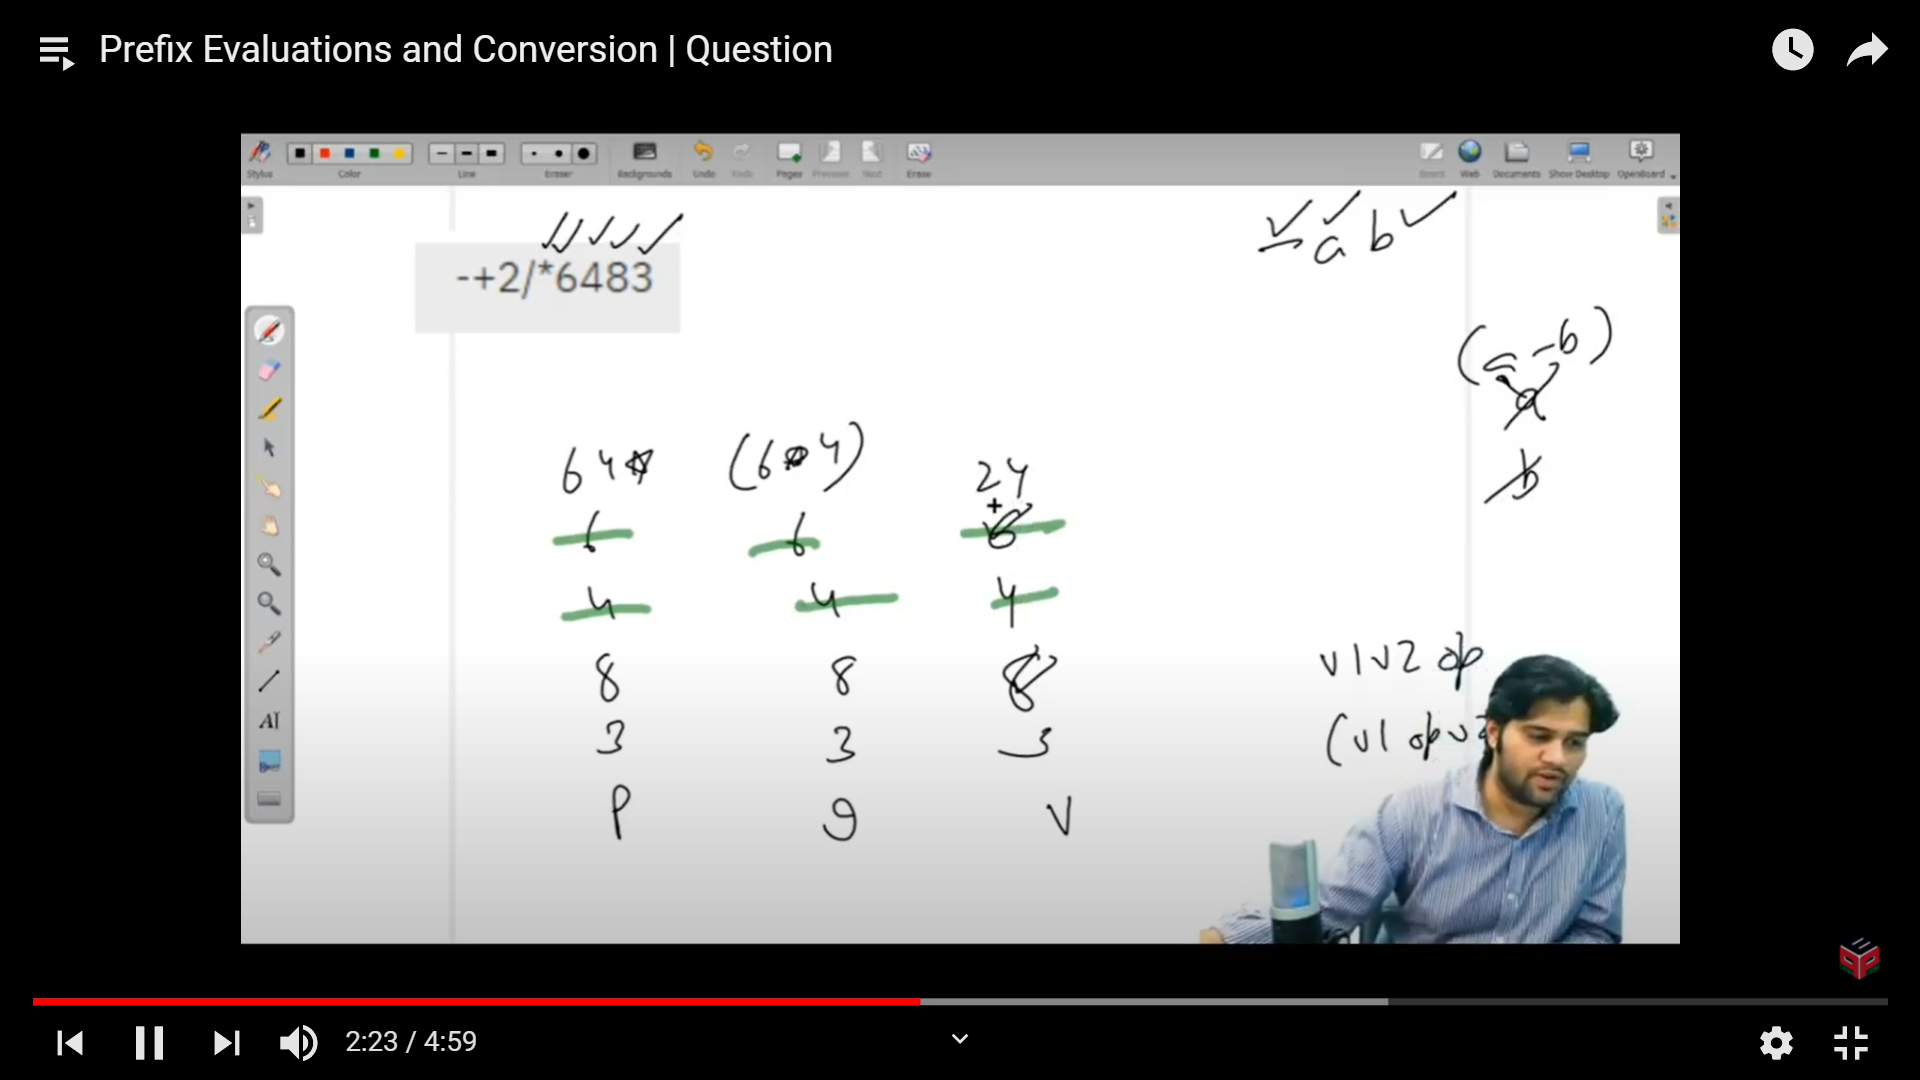 Prefix Evaluations and Conversion | Question
Stylus Color Line Eraser Backgrounds Undo Redo Pages Previous Next Erase Board Web Documents Show Desktop OpenBoard
-+2/*6483
- a b
(a - b)
a
b
6 4 * (6 * 4) 24
6 6 6
4 4 4
8 8 8
3 3 3
P I V
v1 v2 op
(v1 op v2
AI
2:23 / 4:59